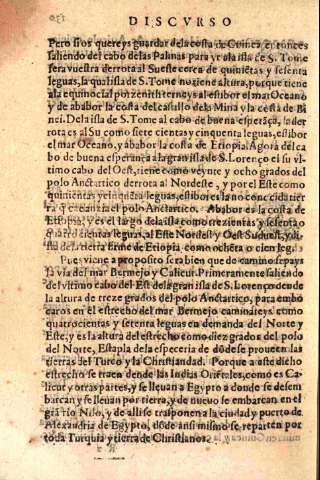 DISCVRSO
Pero si os quereys guardar de la costa de Guinea, entonces
saliendo del cabo de las Palmas para yr a la isla de S. Tome
sera vuestra derrota al Sueste cerca de quiniētas y sesenta
leguas, la qual isla de S. Tome no tiene altura, porque tiene
ala equinocial por zenith terneys al estibor el mar Oceano
y de ababor la costa del castillo dela Mina y la costa de Bi
ni. Dela isla de S. Tome al cabo de buena esperāça, la der
rota es al Su como siete cientas y cinquenta leguas, estibor
el mar Oceano, y ababor la costa de Etiopia. Agora del ca
bo de buena esperāça a la gran isla de S. Lorenço el su vl-
timo cabo del Oest, tiene como veynte y ocho grados del
polo Antarctico derrota al Nordeste, y por el Este como
quinientas y cinquēta leguas, estibor
polo Antarctico. Ababor es la costa de
Etiopia, y en el largo dela isla como trezientas y sesenta o
leguas, al Este Nordest y Oest Suduest, y di
sta dela tierra firme de Etiopia como ochēta o cien leguas.
Pues viene a proposito sera bien que de camino sepays
la via del mar Bermejo y Calicut. Primeramente saliendo
del vltimo cabo del Est dela gran isla de S. Lorenço dende
la altura de treze grados del polo Antarctico, para embo
caros en el estrecho del mar Bermejo caminareys como
quatrocientas y setenta leguas en demanda del Norte y
Este, y es la altura del estrecho como diez grados del polo
del Norte, Escala dela especeria de dōde se proueen las
tierras del Turco y la Christiandad. Porque a este dicho
estrecho se traen dende las Indias Oriētales, como es Ca-
licut y otras partes, y se lleuan a Egypto a donde se desem
barcan y se lleuan por tierra, y de nueuo se embarcan en el
grā rio Nilo, y de alli se trasponen a la ciudad y puerto de
Alexandria de Egypto, dōde ansi mismo se reparten por
toda Turquia y tierra de Christianos.